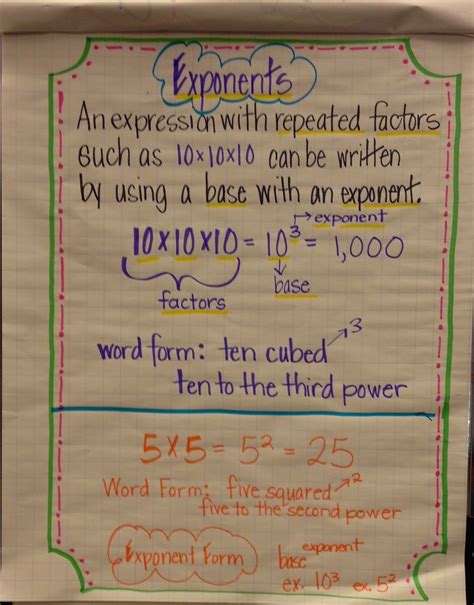 Exponents
An expression with repeated factors
such as 10×10×10 can be written
by using a base with an exponent.
→exponent
10×10×10 = 10³ = 1,000
base
factors
word form: ten cubed ↗3
ten to the third power
5×5 = 5² = 25
Word Form: five squared ↗2
five to the second power
Exponent Form
exponent
base
ex. 10³ ex. 5²